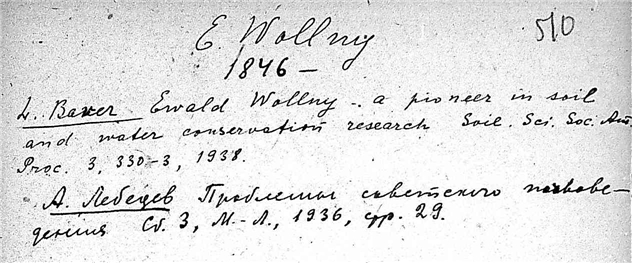 E. Wollny 510
1846 —
L. Baver Ewald Wollny - a pioneer in soil
and water conservation research Soil. Sci. Soc. Am.
Proc. 3, 330-3, 1938.
А. Лебедев Проблемы советского почвове-
дения Сб. 3, М.-Л., 1936, стр. 29.